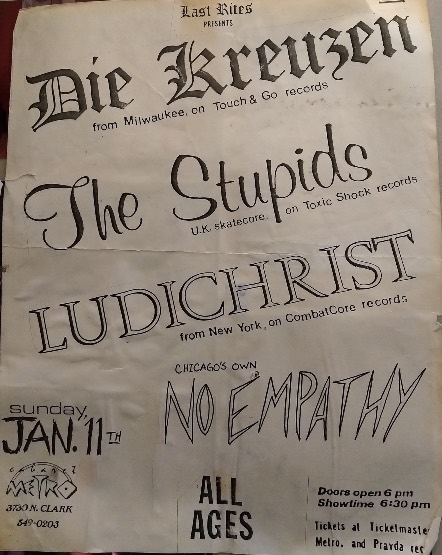 Last Rites
PRESENTS
Die Kreuzen
from Milwaukee, on Touch & Go records
The Stupids
U.K. skatecore, on Toxic Shock records
LUDICHRIST
from New York, on CombatCore records
CHICAGO'S OWN
NO EMPATHY
sunday,
JAN. 11TH
cabaret
METRO
3730 N. CLARK
549-0203
ALL
AGES
Doors open 6 pm
Showtime 6:30 pm
Tickets at Ticketmaste
Metro, and Pravda rec